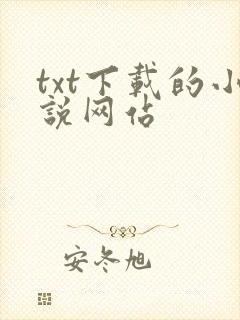 txt下載的小
説网站
安冬旭